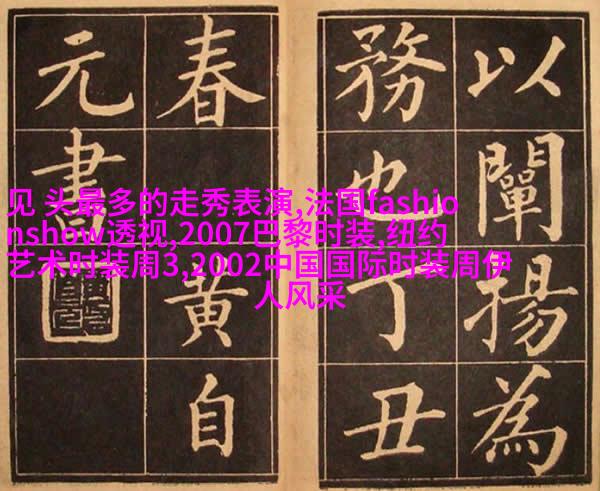 以闡揚為
務也丁丑
春黄自
元書
见 头最多的走秀表演,法国fashio
nshow透视,2007巴黎时装,纽约
艺术时装周3,2002中国国际时装周伊
人风采